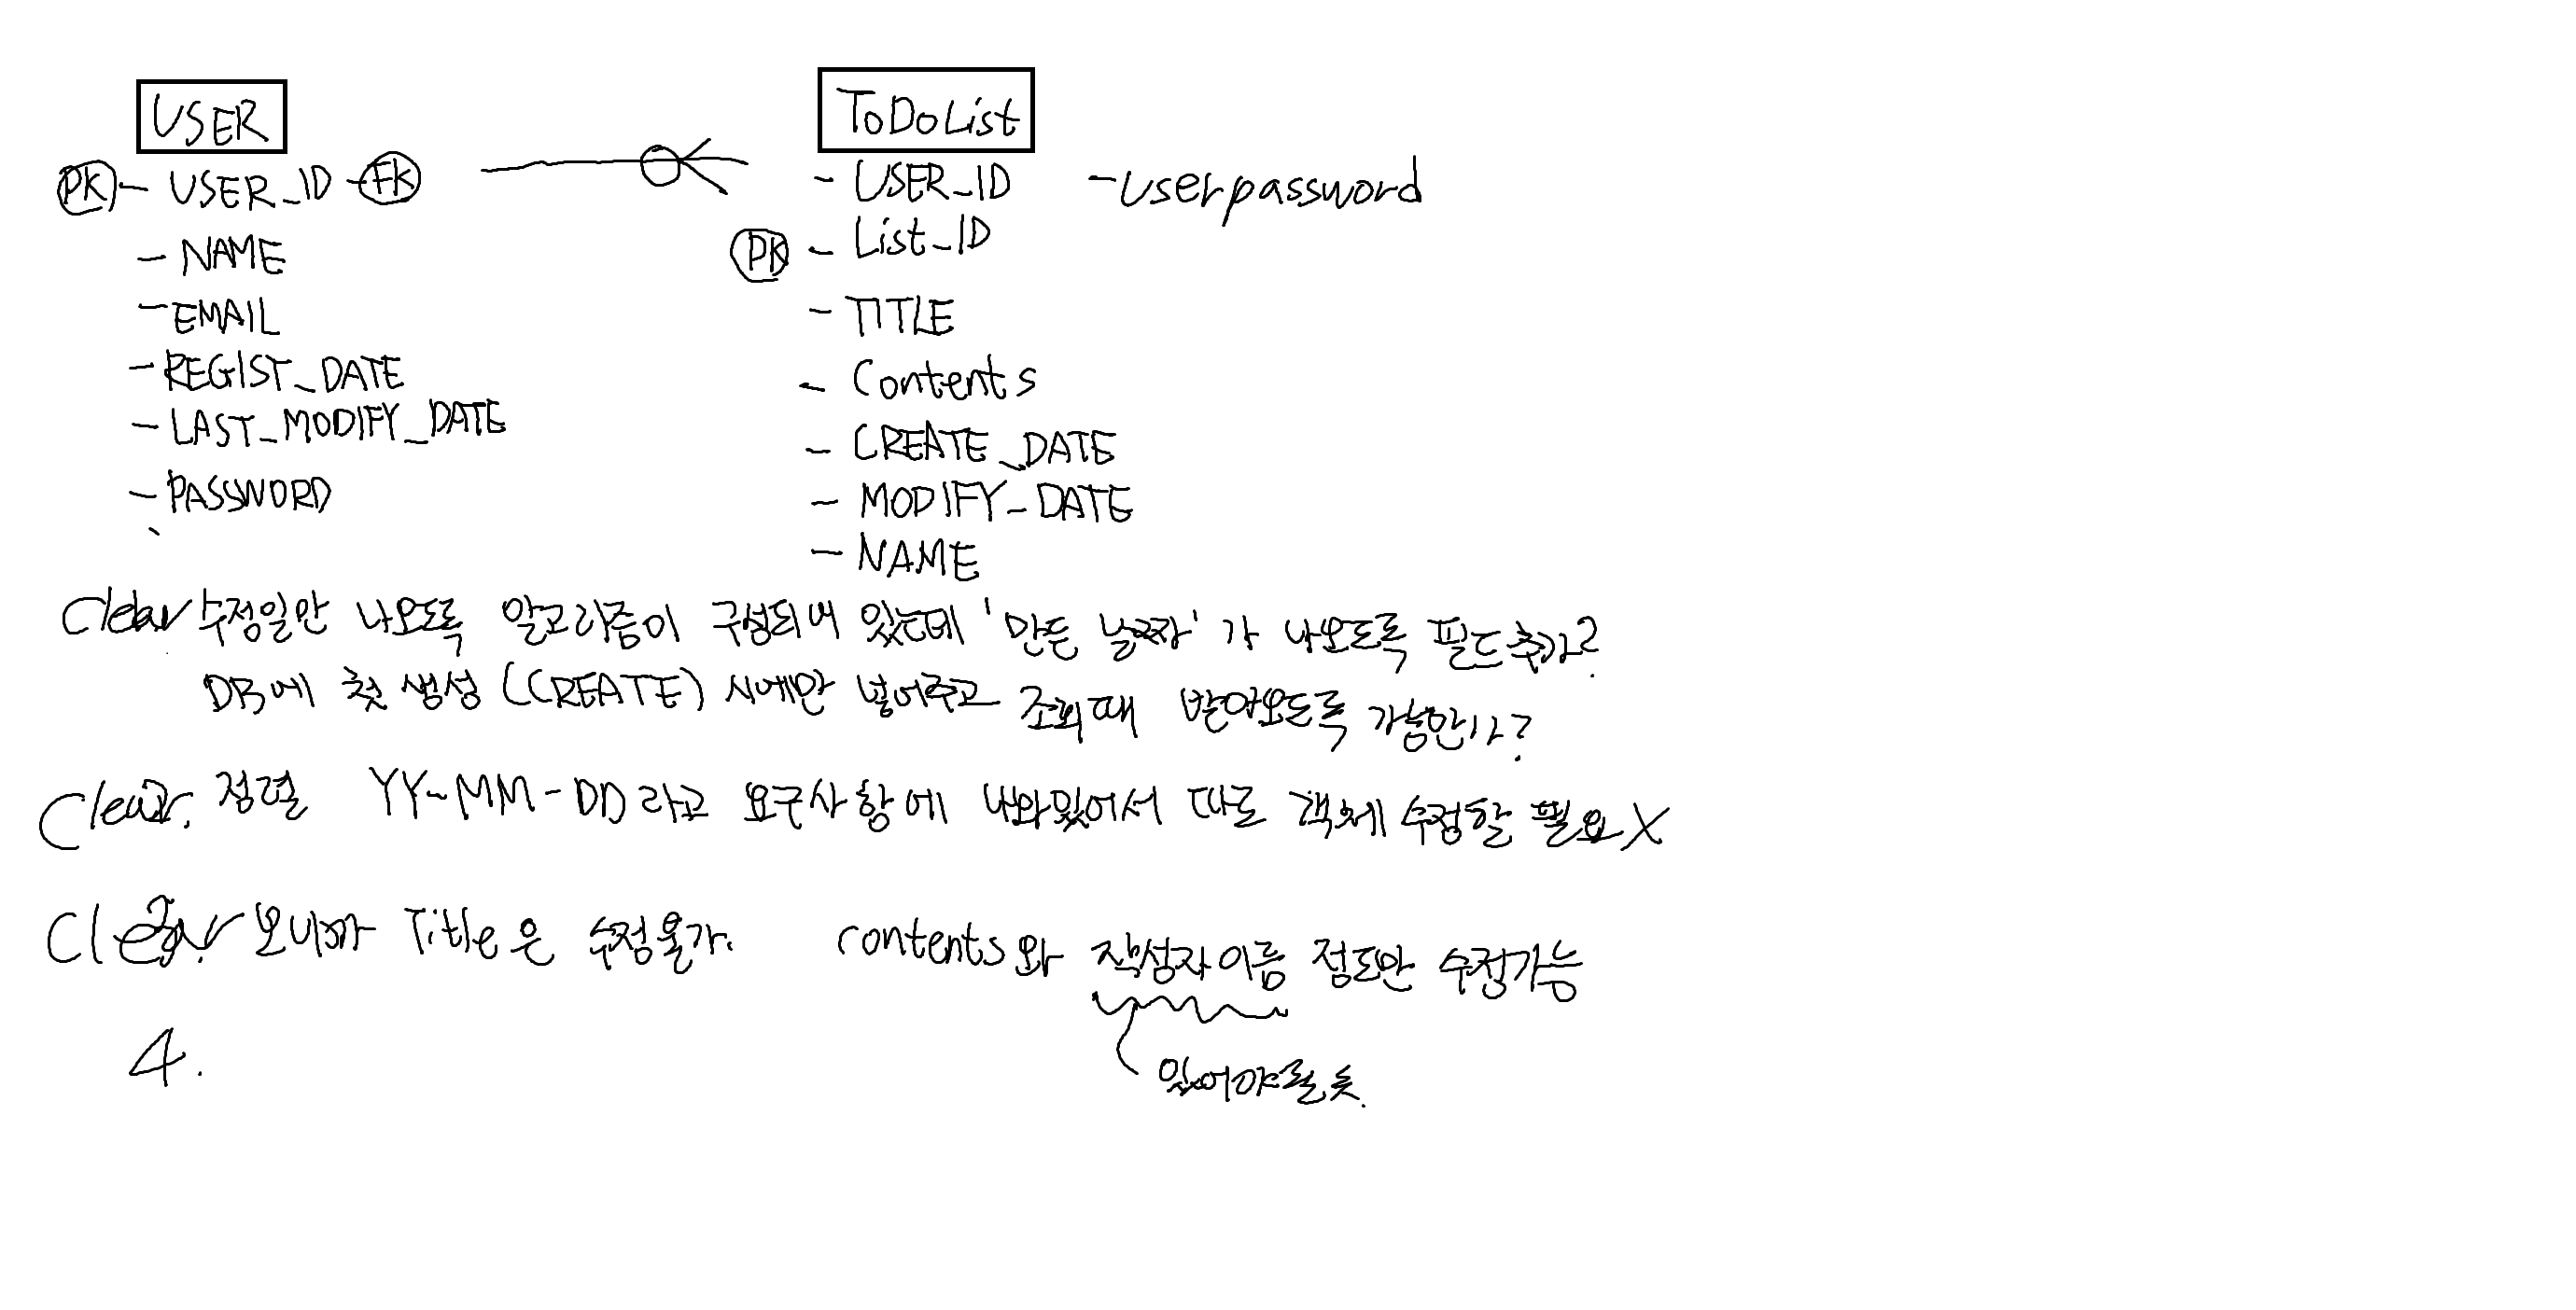 USER
PK - USER_ID - FK
- NAME
- EMAIL
- REGIST_DATE
- LAST_MODIFY_DATE
- PASSWORD
ToDoList
- USER_ID - userpassword
PK - List_ID
- TITLE
- Contents
- CREATE_DATE
- MODIFY_DATE
- NAME
Clear 수정일만 나오도록 알고리즘이 구성되어 있는데 '만든 날짜' 가 나오도록 필드추가?
DB에 첫 생성 (CREATE) 시에만 넣어주고 조회때 받아오도록 가능한가?
Clear 2. 정렬 YY-MM-DD라고 요구사항에 나와있어서 따로 객체 수정할 필요X
Clear 3. 보니까 Title은 수정불가. contents와 작성자이름 정도만 수정가능
있어야될듯.
4.